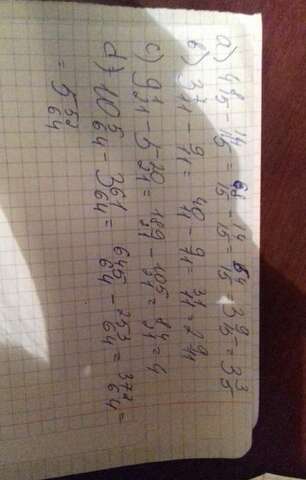 a) 4 8/15 - 14/15 = 68/15 - 14/15 = 54/15 3 9/15 = 3 3/5
b) 3 7/11 - 9/11 = 40/11 - 9/11 = 31/11 = 2 9/11
c) 9 /21 - 5 /21 = 189/ - 105/21 = 84/21 = 4
d) 10 5/64 - 3 61/64 = 645/64 - 253/64 = 372/64 =
= 5 52/64